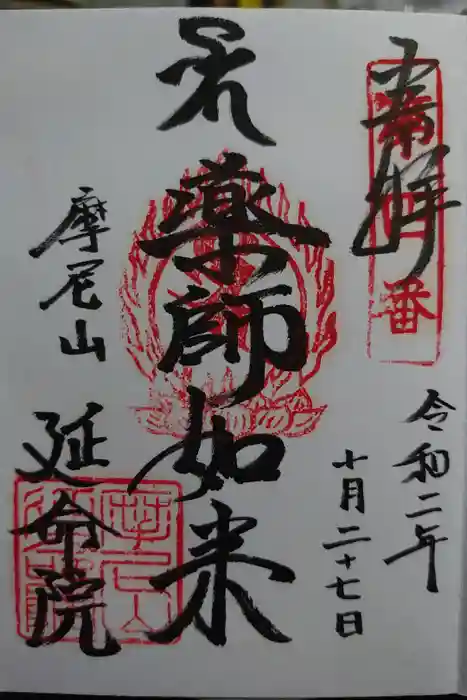 奉拝
第
番
令和二年
十月二十七日
薬師如来
摩尼山
延命院